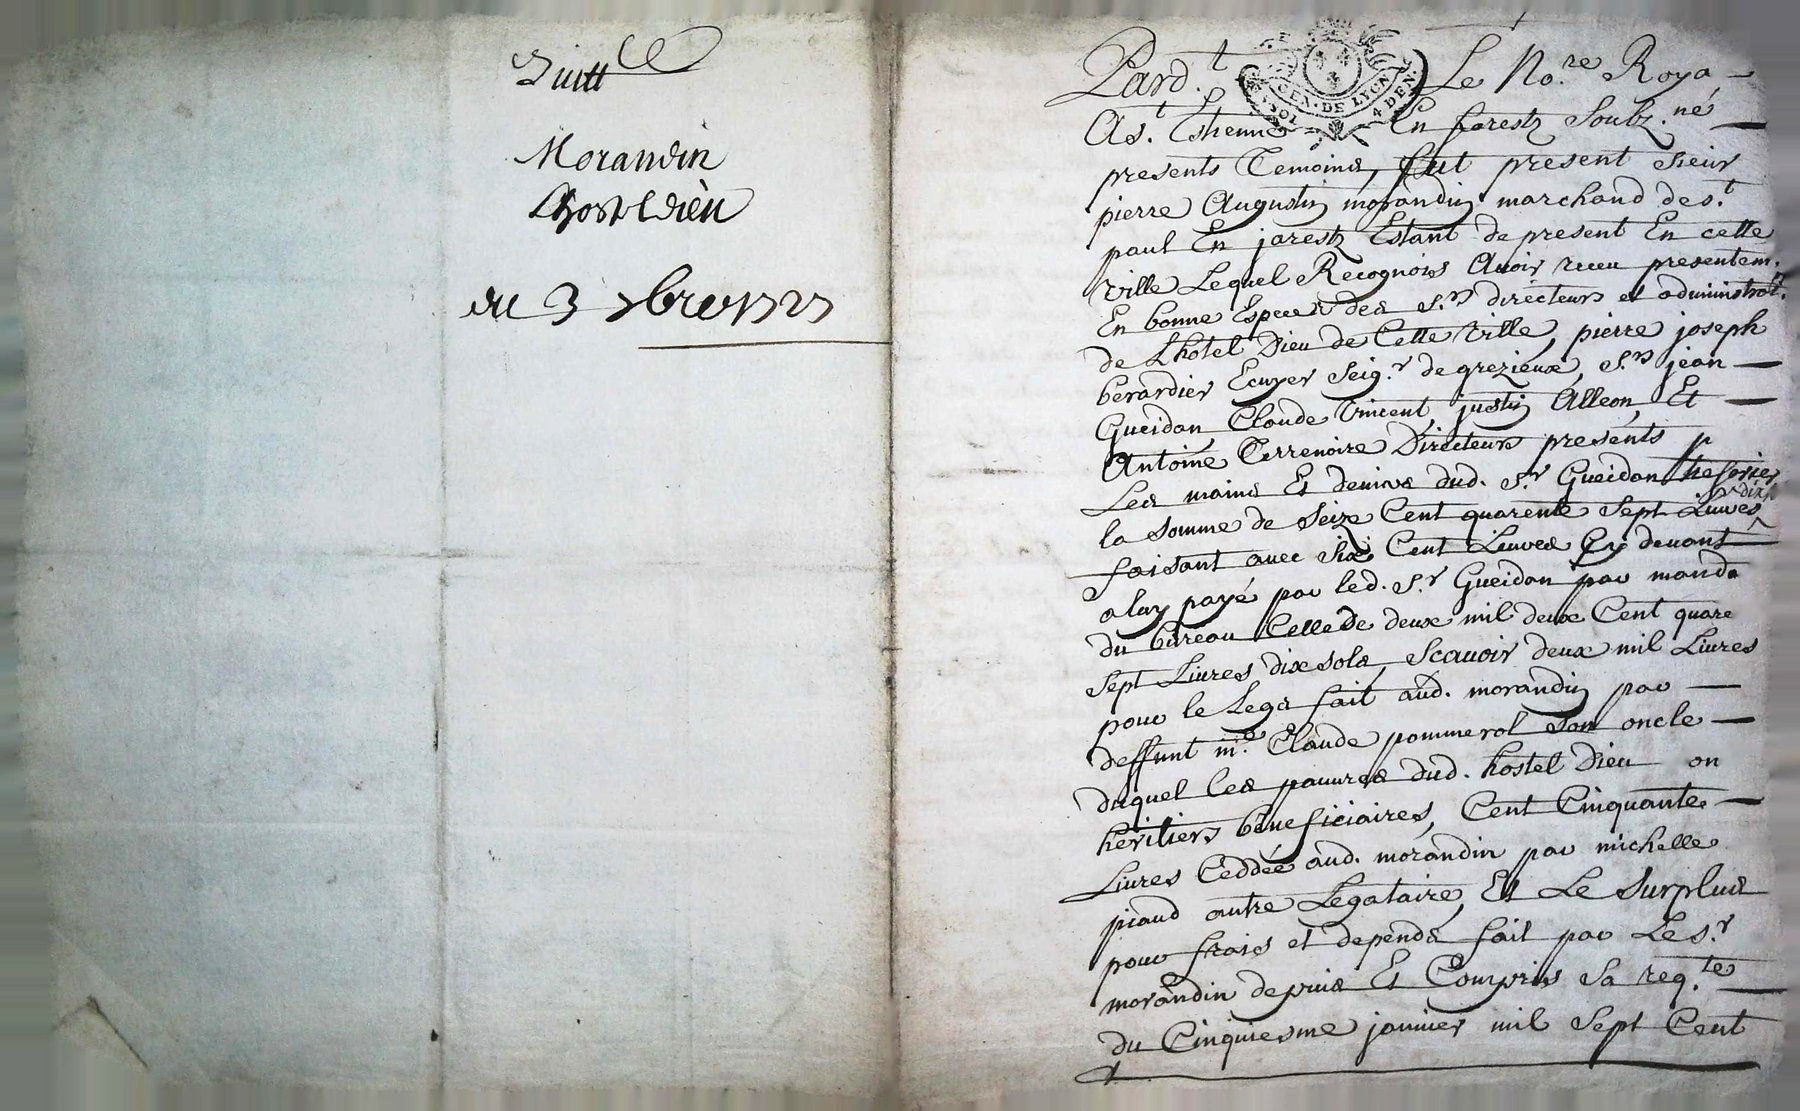 Quitt.ce
Morandin
Lhostel dieu
du 3 7bre 1727
Pard.t Le No.re Roya
GEN. DE LYON 4 DEN.
A S.t Estienne En forestz Soubz.né
presents Temoins, fut present sieur
pierre Augustin morandin marchand de s.t
paul En jarestz Estant de present En cette
ville Lequel Recognois Avoir receu presentem.
En bonne Espece des S.rs directeurs et administrat.
de Lhotel Dieu de Cette Ville, pierre joseph
berardier Ecuyer Seig.r de grezieux, S.rs jean
Gueidan Claude Vincent, justin Alleon, Et
Antoine Terrenoire Directeurs presents p
Les mains Et deniers dud. S.r Gueidan thesorier
la somme de Seize Cent quarente Sept Livres dix s
faisant avec Six Cent Livres Cy devant
a luy payé par led. S.r Gueidan par manda
du bureau Celle de deux mil deux Cent quare
Sept Livres dix sols, Scavoir deux mil Livres
pour le Legs fait aud. morandin par
deffunt m.e Claude pommerol Son oncle
duquel les pauvres dud. hostel Dieu on
heritiers beneficiaires, Cent Cinquante
Livres Ceddée aud. morandin par michelle
piaud autre Legataire, Et Le Surplus
pour frais et depends fait par Le s.r
morandin depuis Et Compris Sa req.te
du Cinquiesme janvier mil Sept Cent